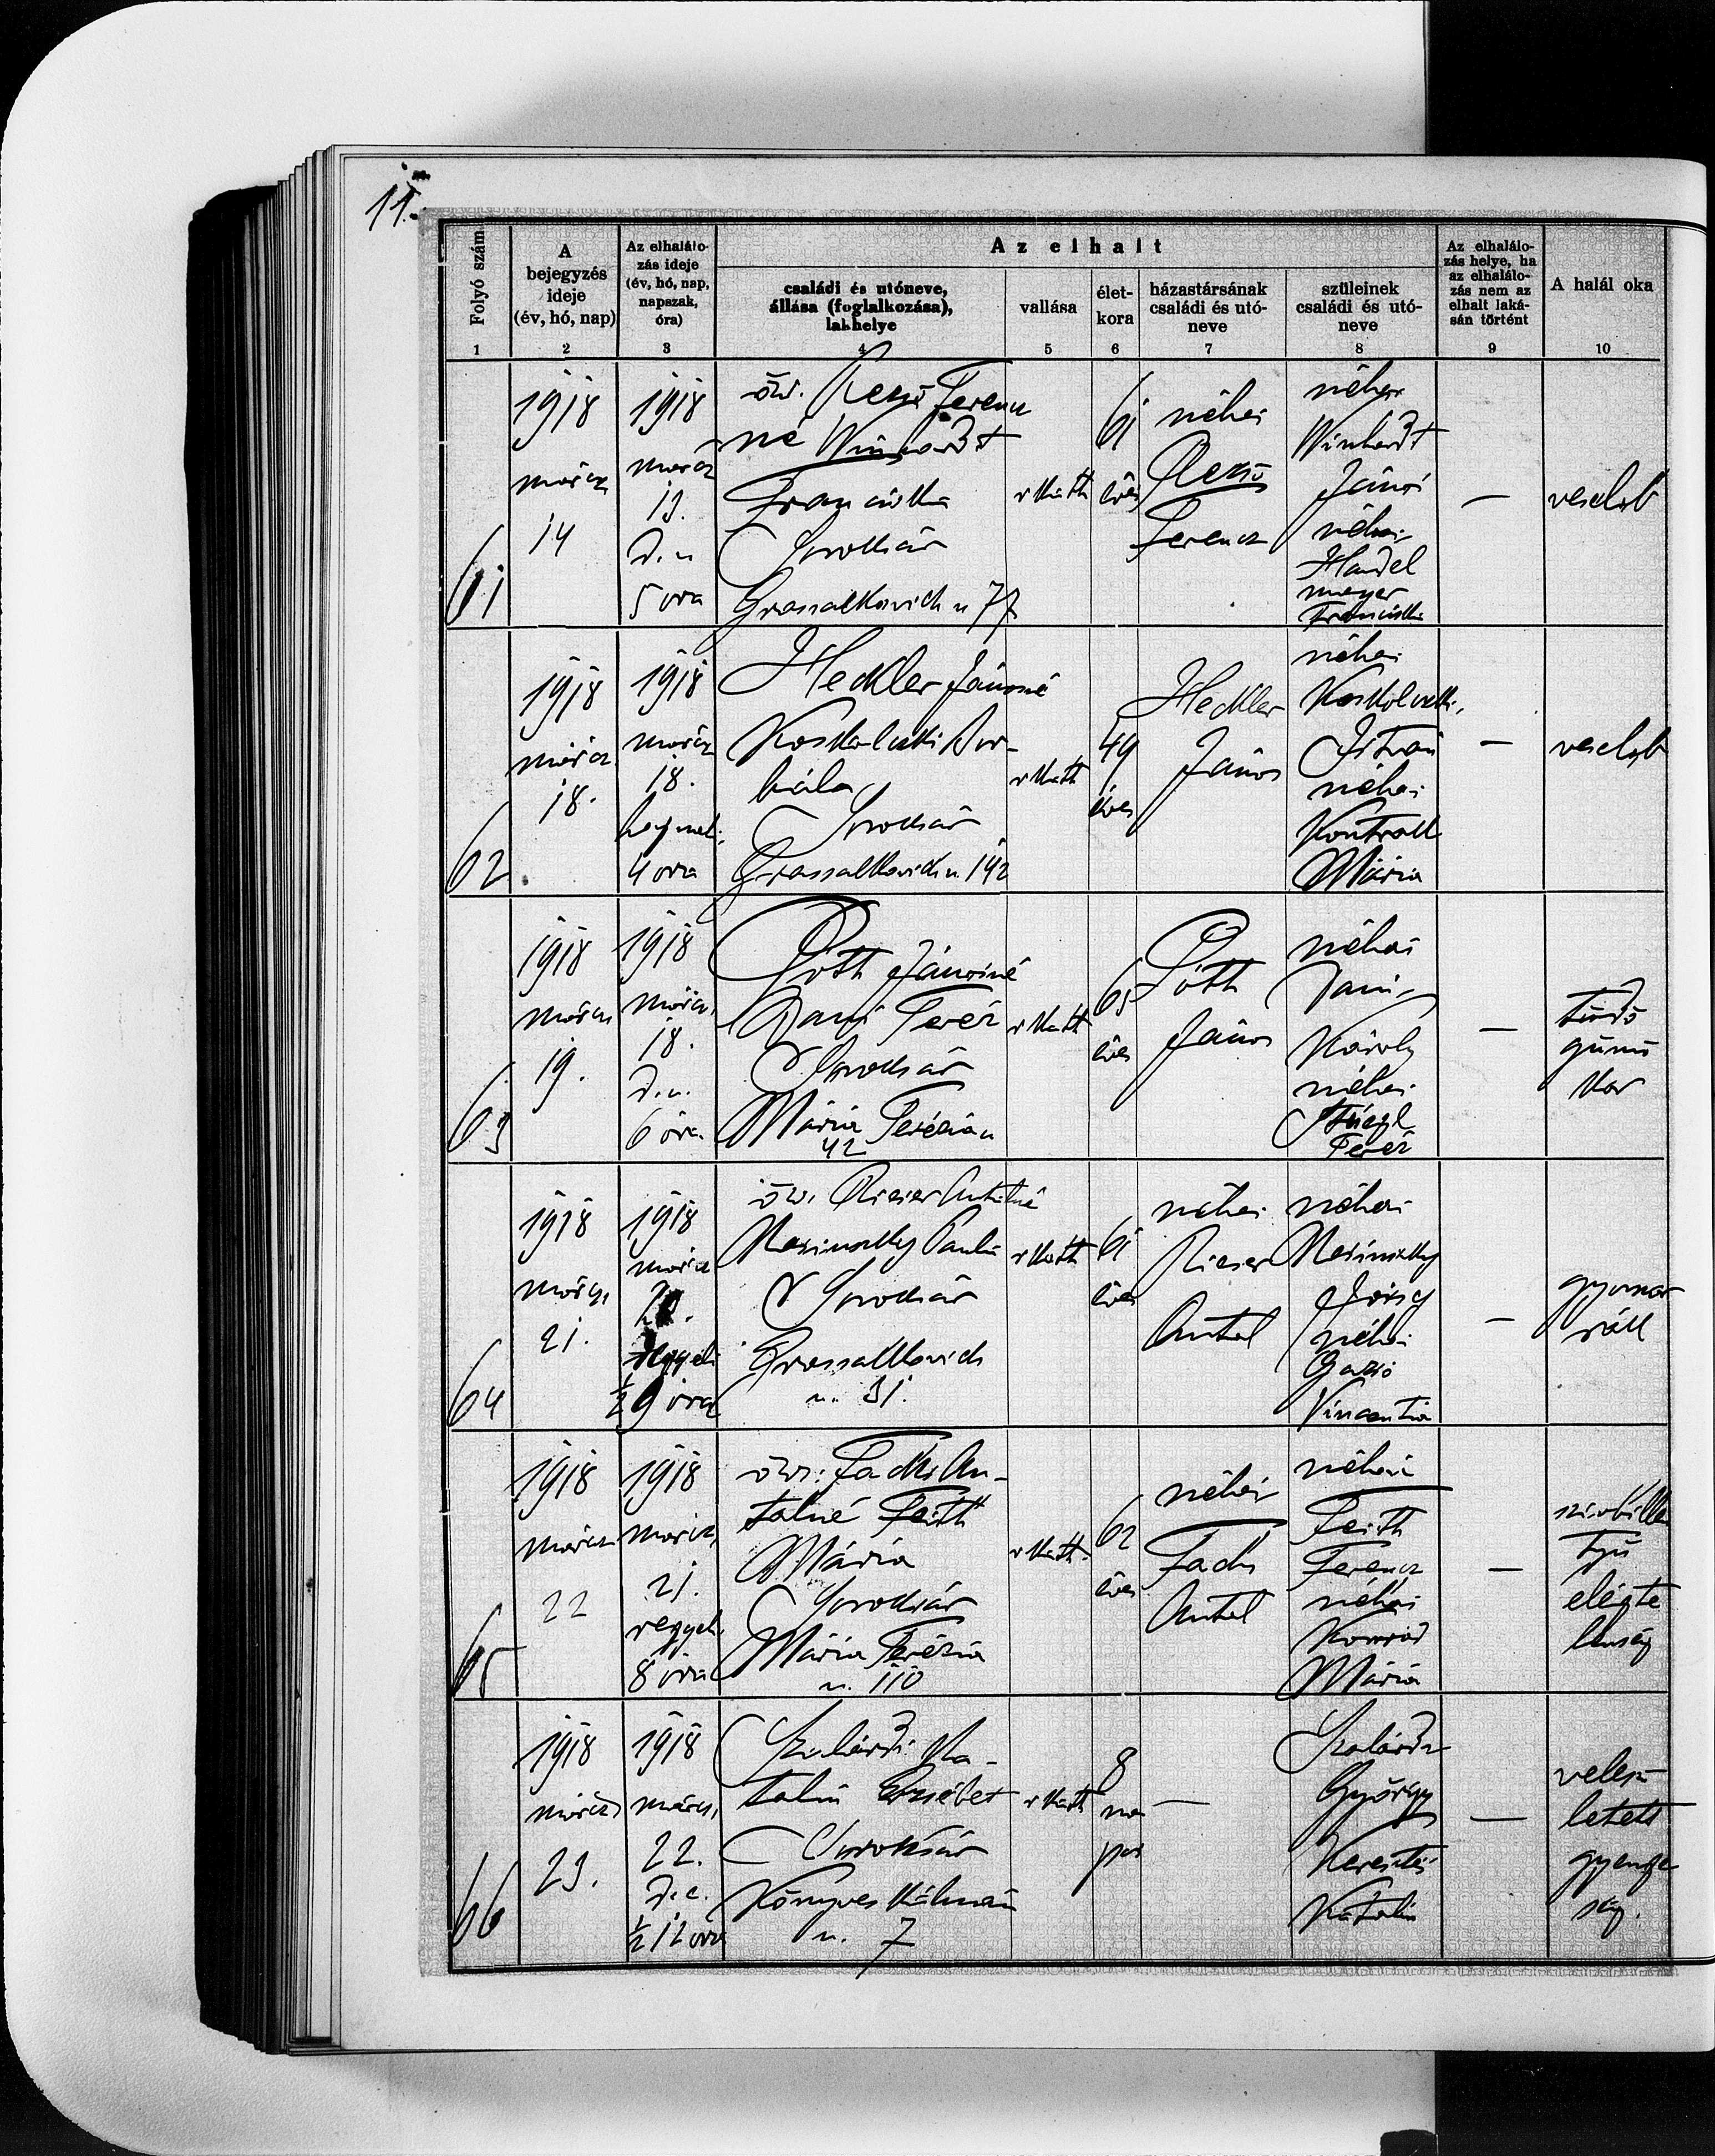 11.
Folyó szám
A
bejegyzés
ideje
(év, hó, nap)
Az elhalálo-
zás ideje
(év, hó, nap,
napszak,
óra)
Az elhalt
családi és utóneve,
állása (foglalkozása),
lakhelye
vallása
élet-
kora
házastársának
családi és utó-
neve
szüleinek
családi és utó-
neve
Az elhalálo-
zás helye, ha
az elhalálo-
zás nem az
elhalt laká-
sán történt
A halál oka
1 2 3 4 5 6 7 8 9 10
61
1918
márcz
14
1918
márcz
13.
d. u
5 óra
özv. Ferencz
né Winhardt
Franciska
Soroksár
Grassalkovich u 77
r kath
61
éves
néhai
Ferencz
néhai
Winhardt
János
néhai
Handel
mayer
Franciska
—
veselob
62
1918
márcz
18.
1918
márcz
18.
hajnali
4 óra
Heckler Jánosné
Bor-
bála
Soroksár
Grassalkovich u. 142
r kath
49
éves
Heckler
János
néhai
István
néhai
Mária
—
veselob
63
1918
márcz
19.
1918
márcz
18.
d. u.
6 óra
Jánosné
Teréz
Soroksár
Mária Terézia u
42
r kath
65
éves
János
néhai
Károly
néhai
Teréz
—
tüdő
gümő
kór
64
1918
márcz
21.
1918
márcz
reggeli
½ 9 óra
özv. Rieser Antalné
Paula
Soroksár
Grassalkovich
u. 31.
r kath
61
éves
néhai
Rieser
Antal
néhai
néhai
Vincentia
—
gyomor
rák
65
1918
márcz
22
1918
márcz
21.
reggeli
8 óra
özv. An-
talné Feith
Mária
Soroksár
Mária Terézia
u. 110
r kath.
62
éves
néhai
Antal
néhai
Feith
Ferencz
néhai
Konrád
Mária
—
szivbillen
tyű
elégte
lenség
66
1918
márcz
23.
1918
márcz
22.
d. e.
½ 12 óra
Szalárdi Ka-
talin Erzsébet
Soroksár
Könyves Kálmán
u. 7
r kath
8
na
pos
—
György
Keresztes
Katalin
—
velesz
letett
gyenge
ség.